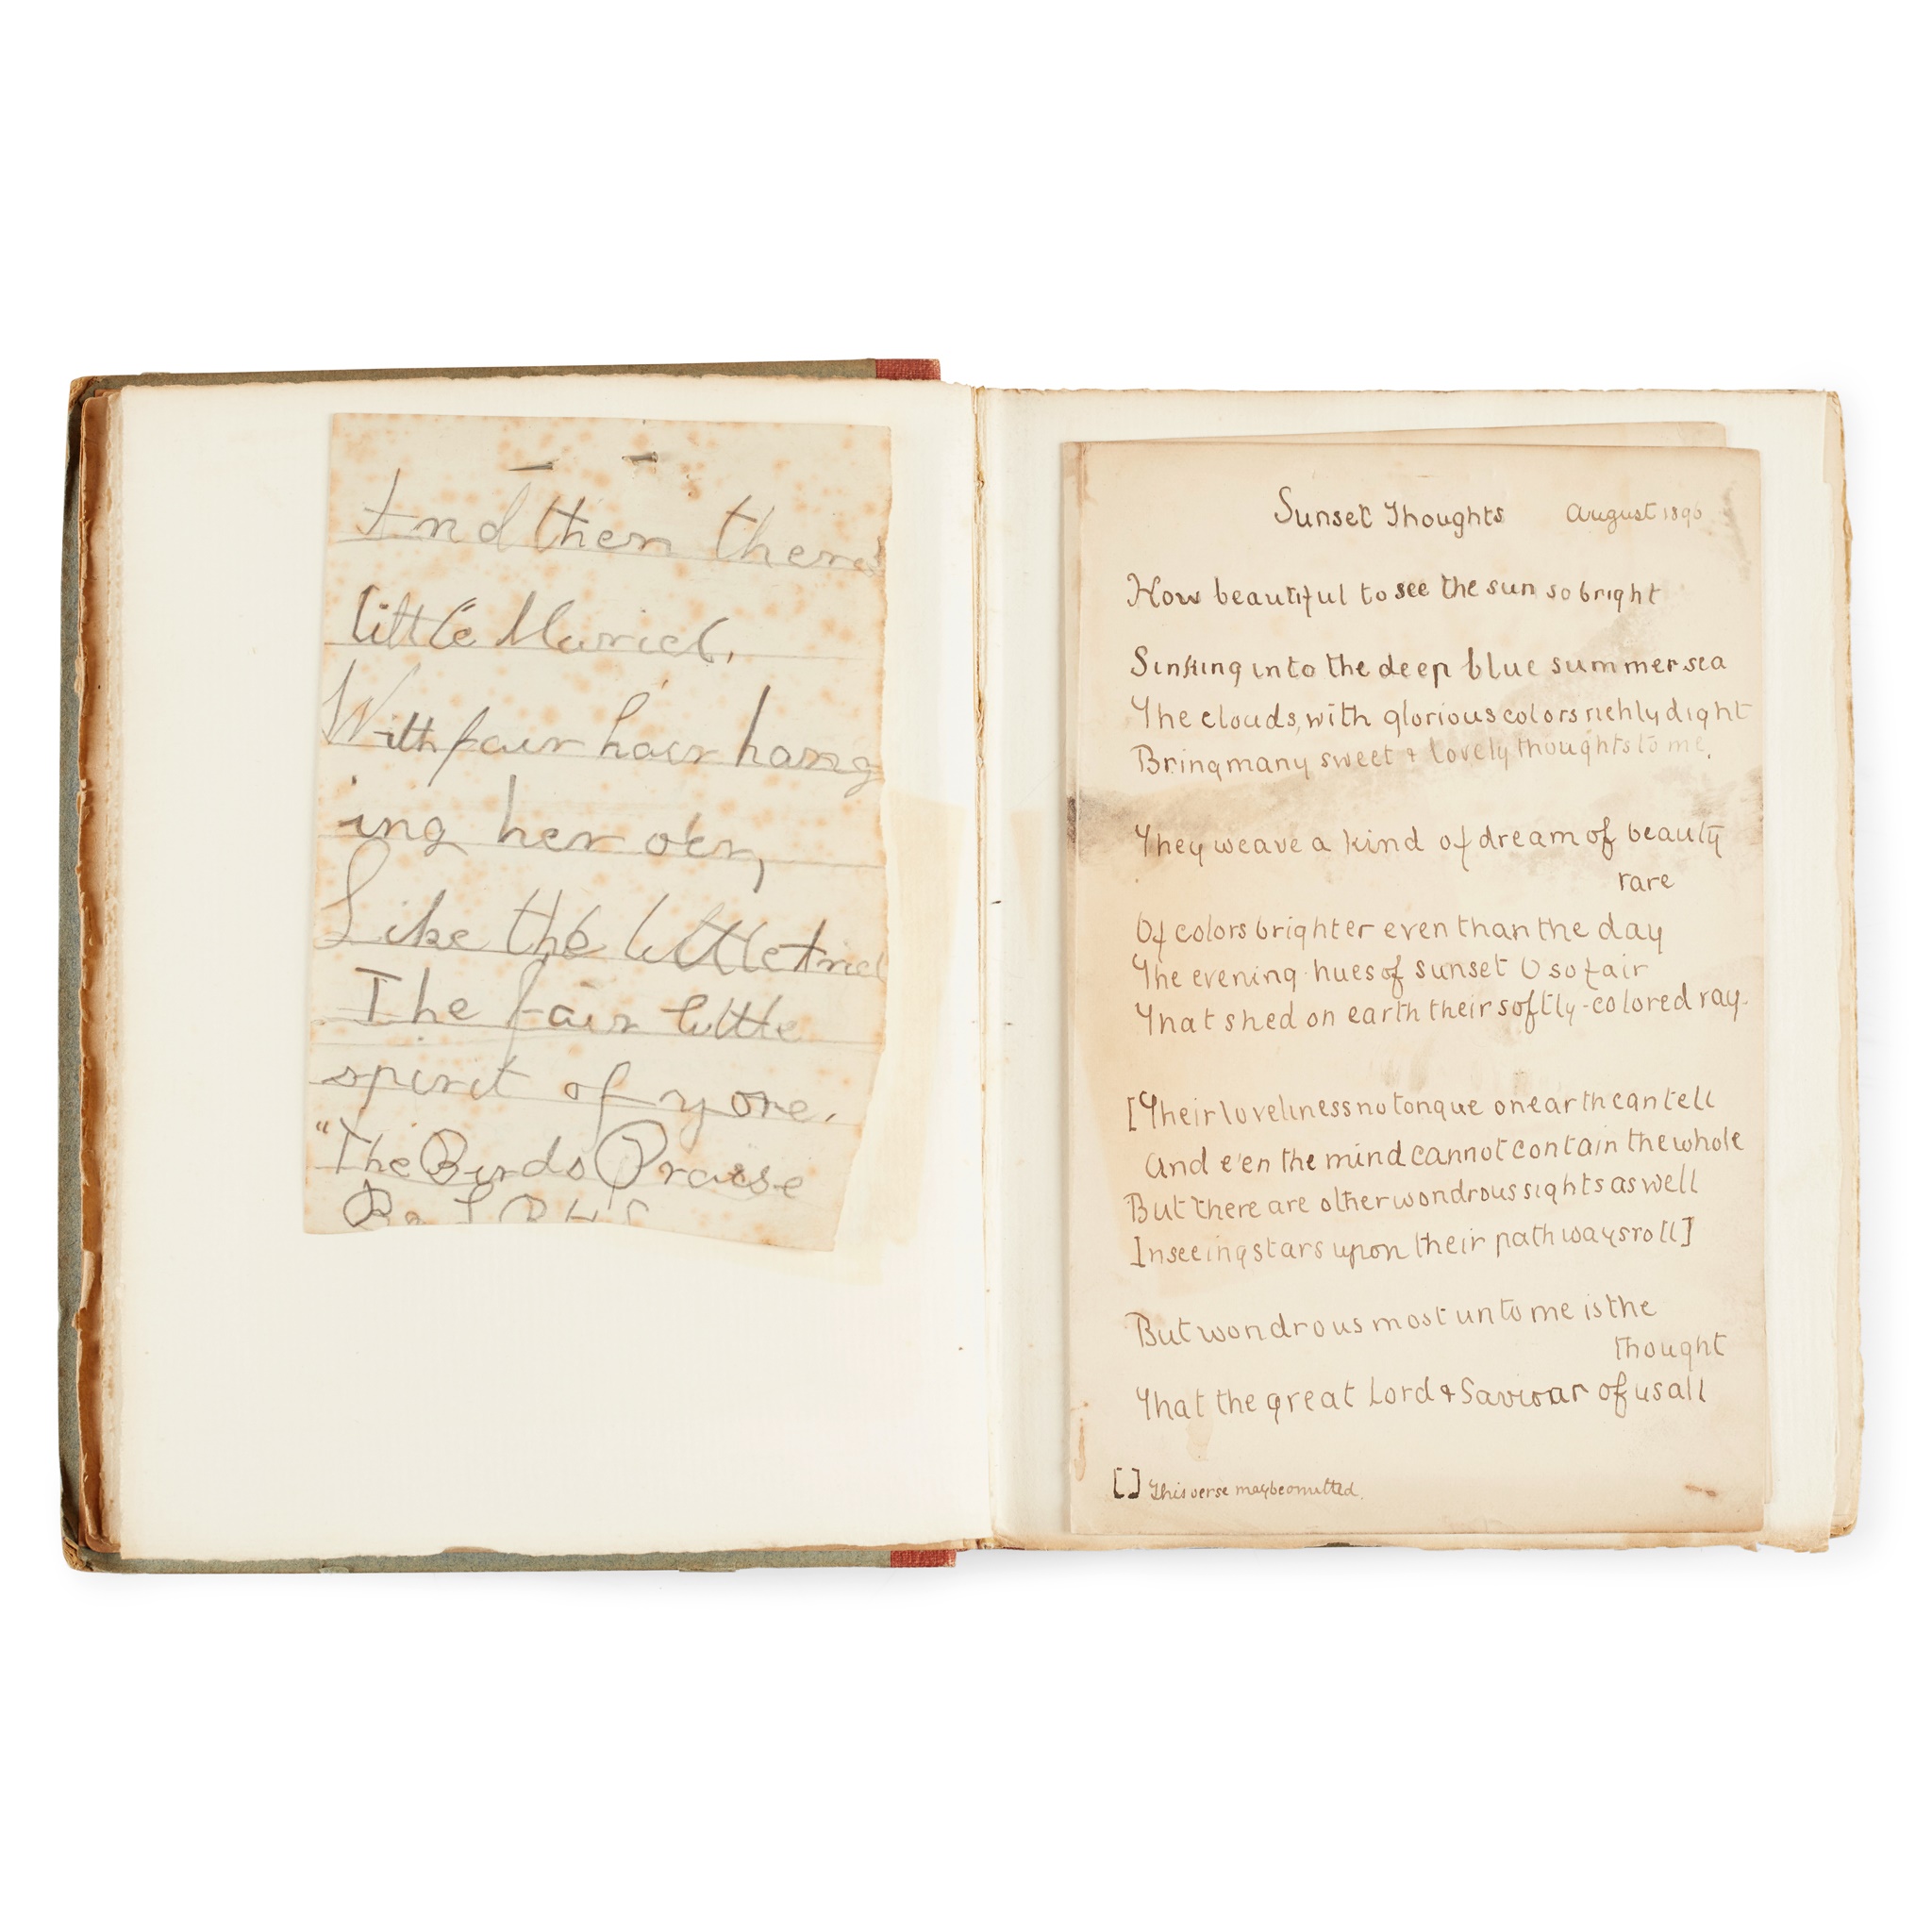 And then there's
little Muriel,
With fair hair hang
ing her o'er,
Like the little Ariel
The fair little
spirit of yore.
"The Birds Praise
Sunset Thoughts August 1896
How beautiful to see the sun so bright
Sinking into the deep blue summer sea
The clouds, with glorious colors richly dight
Bring many sweet & lovely thoughts to me.
They weave a kind of dream of beauty
rare
Of colors brighter even than the day
The evening hues of sunset O so fair
That shed on earth their softly-colored ray.
[Their loveliness no tongue on earth can tell
And e'en the mind cannot contain the whole
But there are other wondrous sights as well
In seeing stars upon their pathways roll]
But wondrous most unto me is the
thought
That the great Lord & Saviour of us all
[ ] This verse may be omitted.